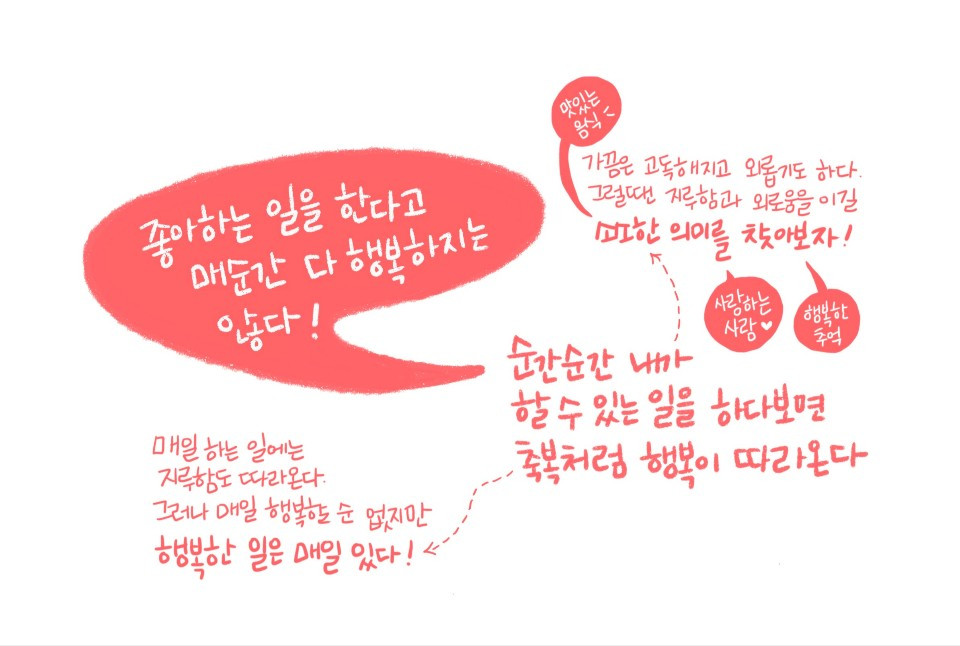 좋아하는 일을 한다고
매순간 다 행복하지는
않다!
맛있는
음식
가끔은 고독해지고 외롭기도 하다.
그럴때엔 지루함과 외로움을 이길
또다른 의미를 찾아보자!
사랑하는
사람
행복한
추억
순간순간 내가
할 수 있는 일을 하다보면
축복처럼 행복이 따라온다
매일 하는 일에는
지루함도 따라온다.
그러나 매일 행복할 순 없지만
행복한 일은 매일 있다!